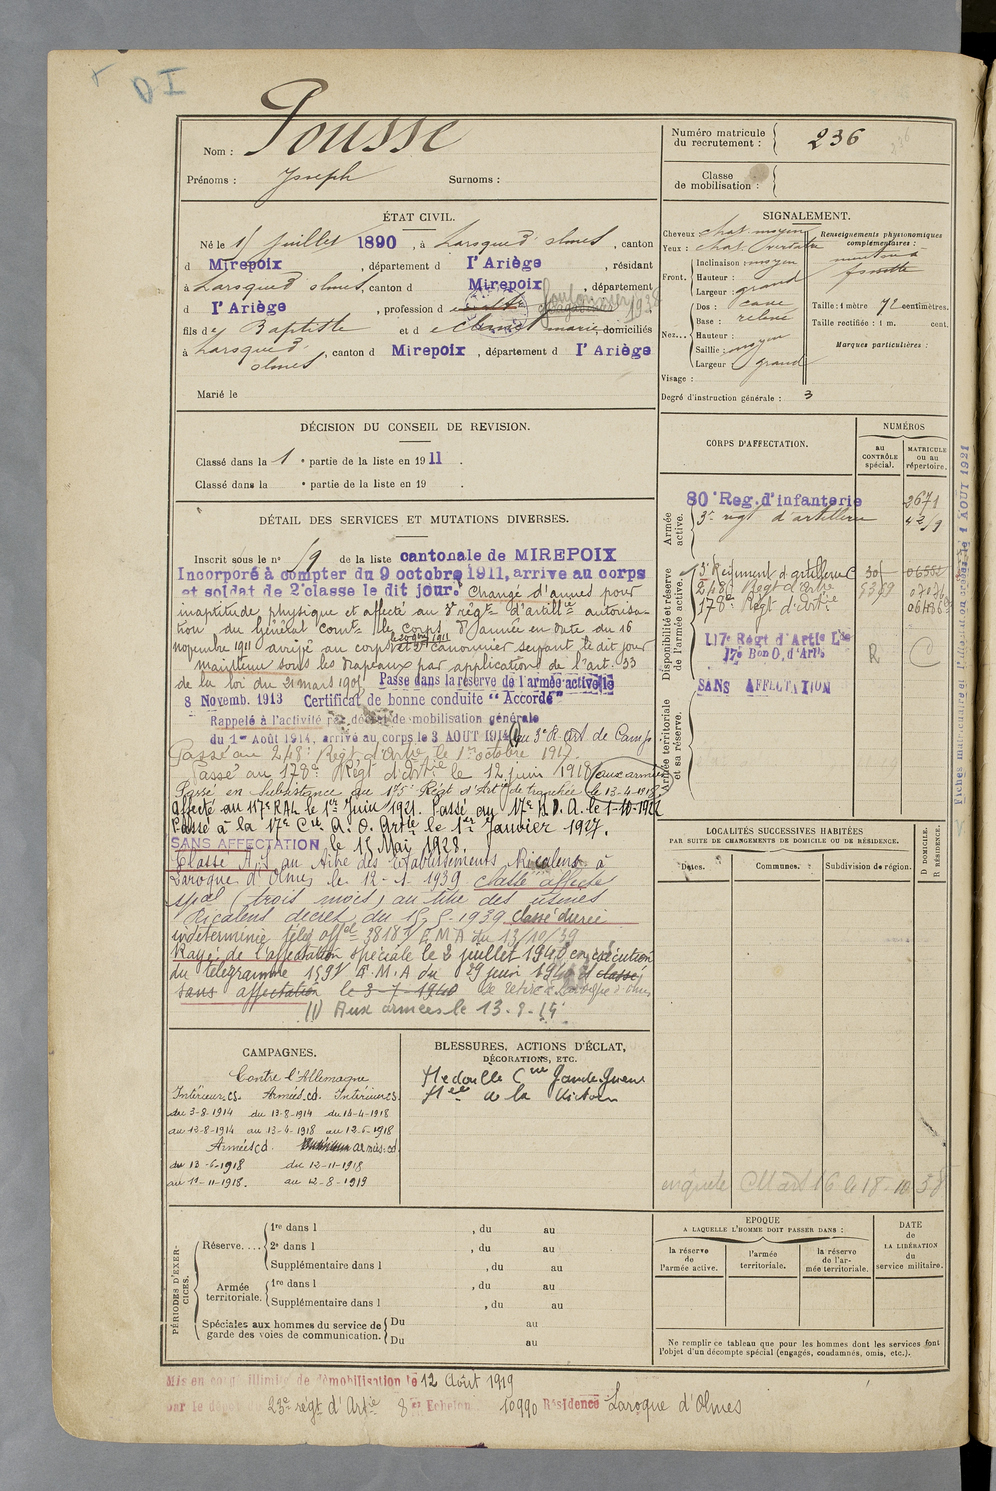 D I
Nom : Pousse
Prénoms : Joseph Surnoms :
Numéro matricule du recrutement : 236
Classe de mobilisation :
ÉTAT CIVIL.
Né le 15 juillet 1890, à Laroque d'olmes, canton
d Mirepoix, département d l'Ariège, résidant
à Laroque d'olmes, canton d Mirepoix, département
d l'Ariège, profession d
fils de Baptiste et d e marie, domiciliés
à Laroque d'
olmes, canton d Mirepoix, département d l'Ariège
Marié le
SIGNALEMENT.
Cheveux chat. moyen
Yeux : chat.
Front. Inclinaison : moyen
Hauteur : grand
Largeur : grand
Nez... Dos : cave
Base : relevé
Hauteur :
Saillie : moyen
Largeur : grand
Visage :
Degré d'instruction générale : 3
Renseignements physionomiques complémentaires :
menton à
fossette
Taille : 1 mètre 72 centimètres.
Taille rectifiée : 1 m. cent.
Marques particulières :
DÉCISION DU CONSEIL DE REVISION.
Classé dans la 1 e partie de la liste en 1911.
Classé dans la e partie de la liste en 19 .
DÉTAIL DES SERVICES ET MUTATIONS DIVERSES.
Inscrit sous le n° 59 de la liste cantonale de MIREPOIX
Incorporé à compter du 9 octobre 1911, arrive au corps
et soldat de 2e classe le dit jour. Changé d'armes pour
inaptitude physique et affecté au 3e régt d'artille autorisa-
tion du Général Comt le Corps d'armée en date du 16
novembre 1911 arrivé au corps et 2e canonnier servant le dit jour
maintenu sous les drapeaux par application de l'art. 33
de la loi du 21 mars 1905 Passé dans la réserve de l'armée active le
8 Novemb. 1913 Certificat de bonne conduite "Accordé"
Rappelé à l'activité par décret de mobilisation générale
du 1er Août 1914, arrivé au corps le 3 AOUT 1914 (1) au 3e R. Art. de Camp
Passé au 248e Régt d'Artie le 1er octobre 1917
Passé au 178e Régt d'Artie le 12 juin 1918 (aux armées
Passé en subsistance au 175e Régt d'Artie de tranchée le 13-4-1918)
Affecté au 117e RAL le 1er Juin 1921. Passé au 17e B.O.A. le 1-10-1922
Passé à la 17e Cie A. O. Artie le 1er Janvier 1927.
SANS AFFECTATION le 15 Mai 1928.
Classé A.S au titre des Etablissements Ricalens à
Laroque d'Olmes le 12-1-1939 classé affecté
spal (trois mois) au titre des usines
Ricalens decret du 15-5-1939 classé durée
indéterminée télég offel 38183 E M A du 13/10/39
Rayé de l'affectation spéciale le 2 juillet 1940 en exécution
du télégramme 1592 E.M.A du 29 juin 1940 et classé
sans affectation le 3-7-1940 se retire à Laroque d'Olmes
(1) Aux armées le 13-8-14
CORPS D'AFFECTATION.
NUMÉROS
au CONTRÔLE spécial.
MATRICULE ou au répertoire.
Armée active.
80e Reg. d'infanterie 2671
3e régt d'artillerie 42/9
Disponibilité et réserve de l'armée active.
3e Régiment d'artillerie
248e Régt d'Artie
178e Régt d'Artie
117e Régt d'Artie Lde
17e Bon O. d'Artie R
SANS AFFECTATION
Armée territoriale et sa réserve.
LOCALITÉS SUCCESSIVES HABITÉES
PAR SUITE DE CHANGEMENTS DE DOMICILE OU DE RÉSIDENCE.
Dates. Communes. Subdivision de région. D DOMICILE. R RÉSIDENCE.
enquête Mart 16 le 18-10 38
CAMPAGNES.
Contre l'Allemagne
Intérieur cs. Armées cd. Intérieur cs.
du 3-8-1914 du 13-8-1914 du 14-4-1918
au 12-8-1914 au 13-4-1918 au 12-6-1918
Armées cd. armées cd.
du 13-6-1918 du 12-11-1918
au 11-11-1918. au 12-8-1919
BLESSURES, ACTIONS D'ÉCLAT,
DÉCORATIONS, ETC.
Médaille Cve Grande Guerre
Mlle de la Victoire
PÉRIODES D'EXERCICES.
Réserve.... 1re dans l , du au
2e dans l , du au
Supplémentaire dans l , du au
Armée territoriale. 1re dans l , du au
Supplémentaire dans l , du au
Spéciales aux hommes du service de garde des voies de communication. Du au
Du au
EPOQUE
A LAQUELLE L'HOMME DOIT PASSER DANS :
la réserve de l'armée active.
l'armée territoriale.
la réserve de l'armée territoriale.
DATE de LA LIBÉRATION du service militaire.
Ne remplir ce tableau que pour les hommes dont les services font
l'objet d'un décompte spécial (engagés, condamnés, omis, etc.).
Mis en congé illimité de démobilisation le 12 Août 1919
par le dépôt du 23e régt d'Artie 8e Echelon 10990 Résidence Laroque d'Olmes